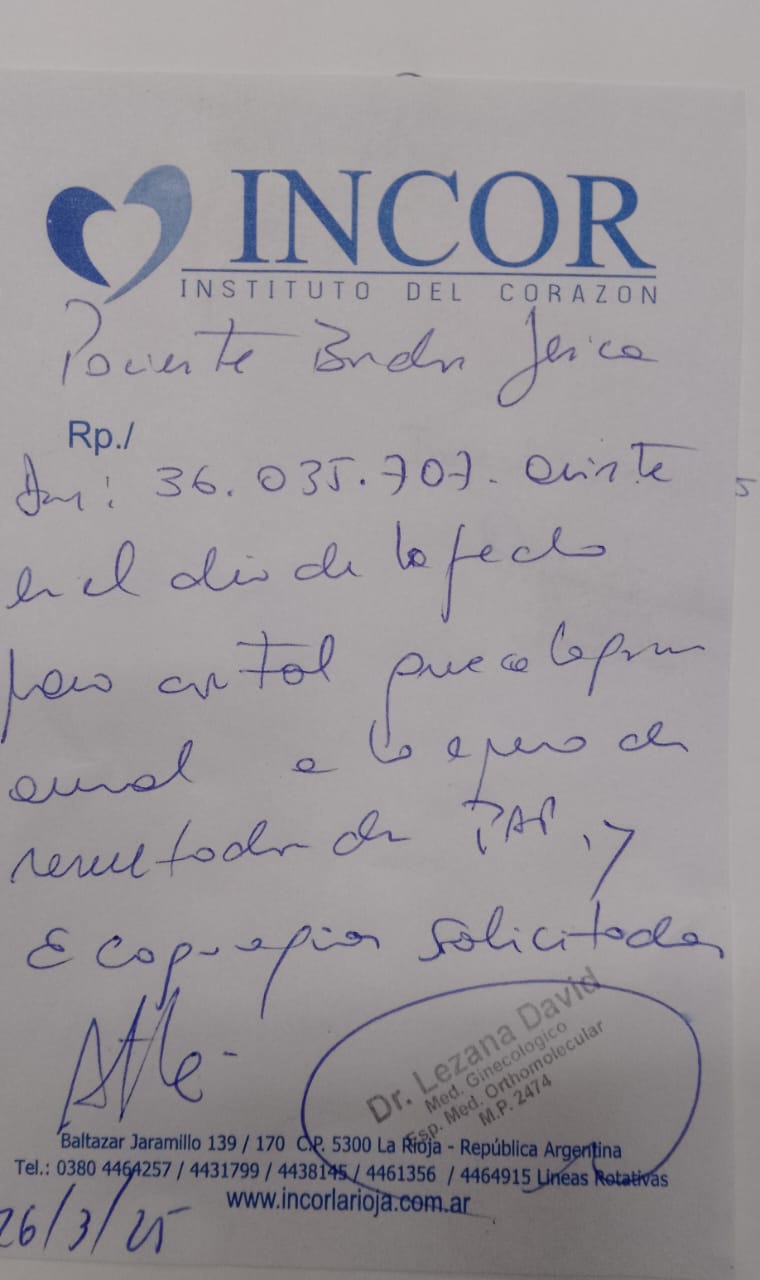 INCOR
INSTITUTO DEL CORAZON
Paciente
Rp./
36.035.707. asiste
en el dia de la fecha
para control
anual a la espera de
resultados de PAP, y
Ecografias solicitadas
Atte-
Dr. Lezana David
Med. Ginecologico
Esp. Med. Orthomolecular
M.P. 2474
Baltazar Jaramillo 139 / 170 C.P. 5300 La Rioja - República Argentina
Tel.: 0380 4464257 / 4431799 / 4438145 / 4461356 / 4464915 Lineas Rotativas
www.incorlarioja.com.ar
26/3/25